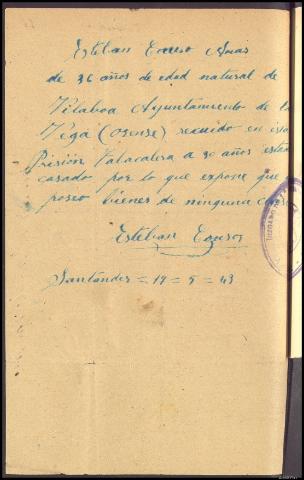 Esteban Eauso Arias
de 36 años de edad natural de
Vilaboa Ayuntamiento de la
Vega (Orense) recuido en esta
Prisión Tabacalera a 30 años estado
casado por lo que expone que
poseo bienes de ninguna clase
Esteban
Santander = 19 = 5 = 43
JUZGADO